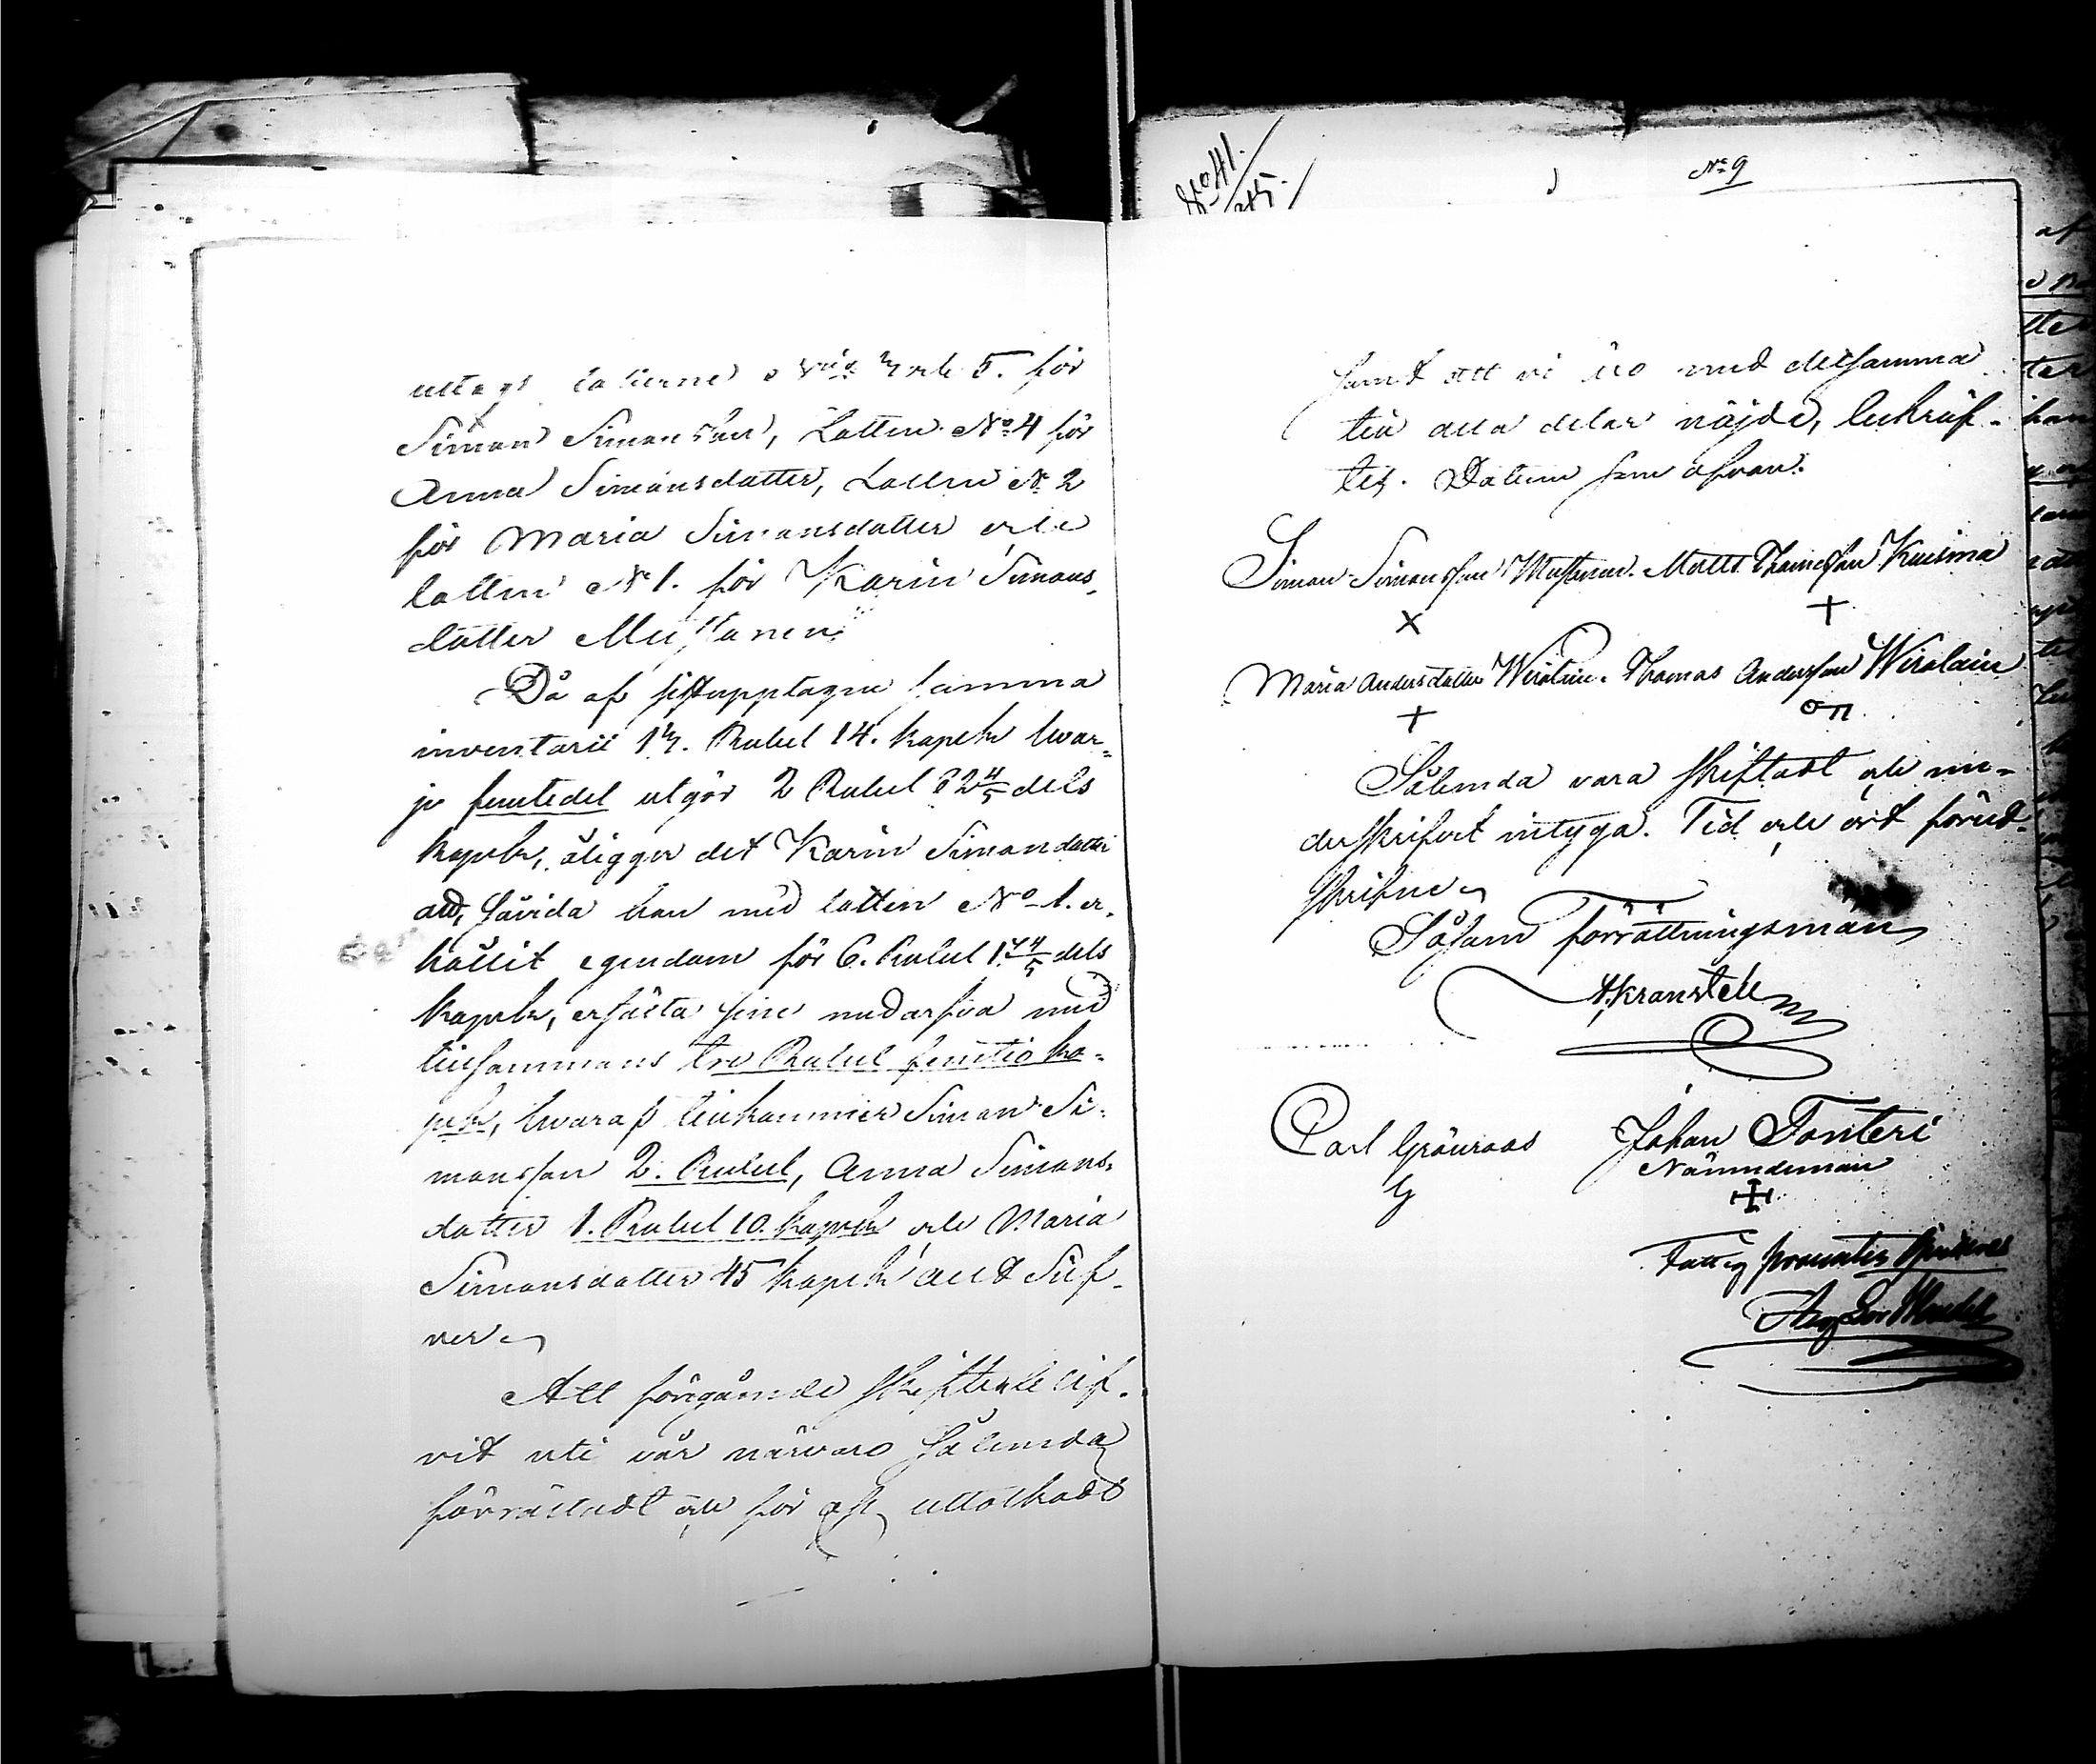 No 41.
/245.
No 9
uttogs lotterne No 3 och 5. för
Simon Simonsson, Lotten No 4 för
Anna Simonsdotter, Lotten No 2
för Maria Simonsdotter och
lotten No 1. för Karin Simons-
dotter Mustanen.
Då af sistupptagne summa
inventarii 14. Rubel 14. kopek hvar-
je femtedel utgör 2 Rubel 82 4/5 dels
kopek, åligger det Karin Simonsdotter
att, såvida hon med lotten No 1. er-
hållit egendom för 6. Rubel 4/5 dels
kopek, ersätta sine medarfva med
tillsammans tre Rubel femtio ko-
pek, hvaraf tillkommer Simon Si-
monsson 2. Rubel, Anna Simons-
dotter 1. Rubel 10. kopek och Maria
Simonsdotter 45 kopek allt Silf-
ver
Att föregående skifte blif-
vit uti vår närvaro sålunda
förrättadt och för oss uttolkadt
samt att vi äro med detsamma
till alla delar nöjde, bekräf-
tes. Datum som ofvan.
Simon Simonsson Mustanen. Matts Thomasson Kuisma
X +
Maria Andersdotter Wirolain. Thomas Andersson Wirolain
+
Sålunda vara skiftadt och un-
derskrifvet intyga. Tid och ort förut-
skrifne
Såsom förrättningsman
A. Kranstell
Carl Grönroos Johan Tonteri
Nämndeman
Fattig procenten